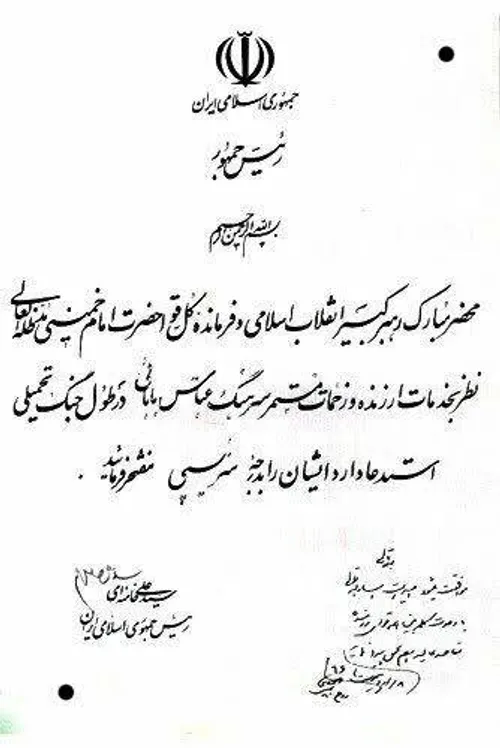 جمهوری اسلامی ایران
رئیس جمهور
بسم الله الرحمن الرحیم
محضر مبارک رهبر کبیر انقلاب اسلامی و فرمانده کل قوا حضرت امام خمینی مدظله العالی
نظر بخدمات ارزنده و زحمات مستمر سرهنگ عباس بابائی در طول جنگ تحمیلی
استدعا دارد ایشان را بدرجه سرتیپی مفتخر فرمائید .
سید علی خامنه‌ای
رئیس جمهوری اسلامی ایران
موافقت میشود